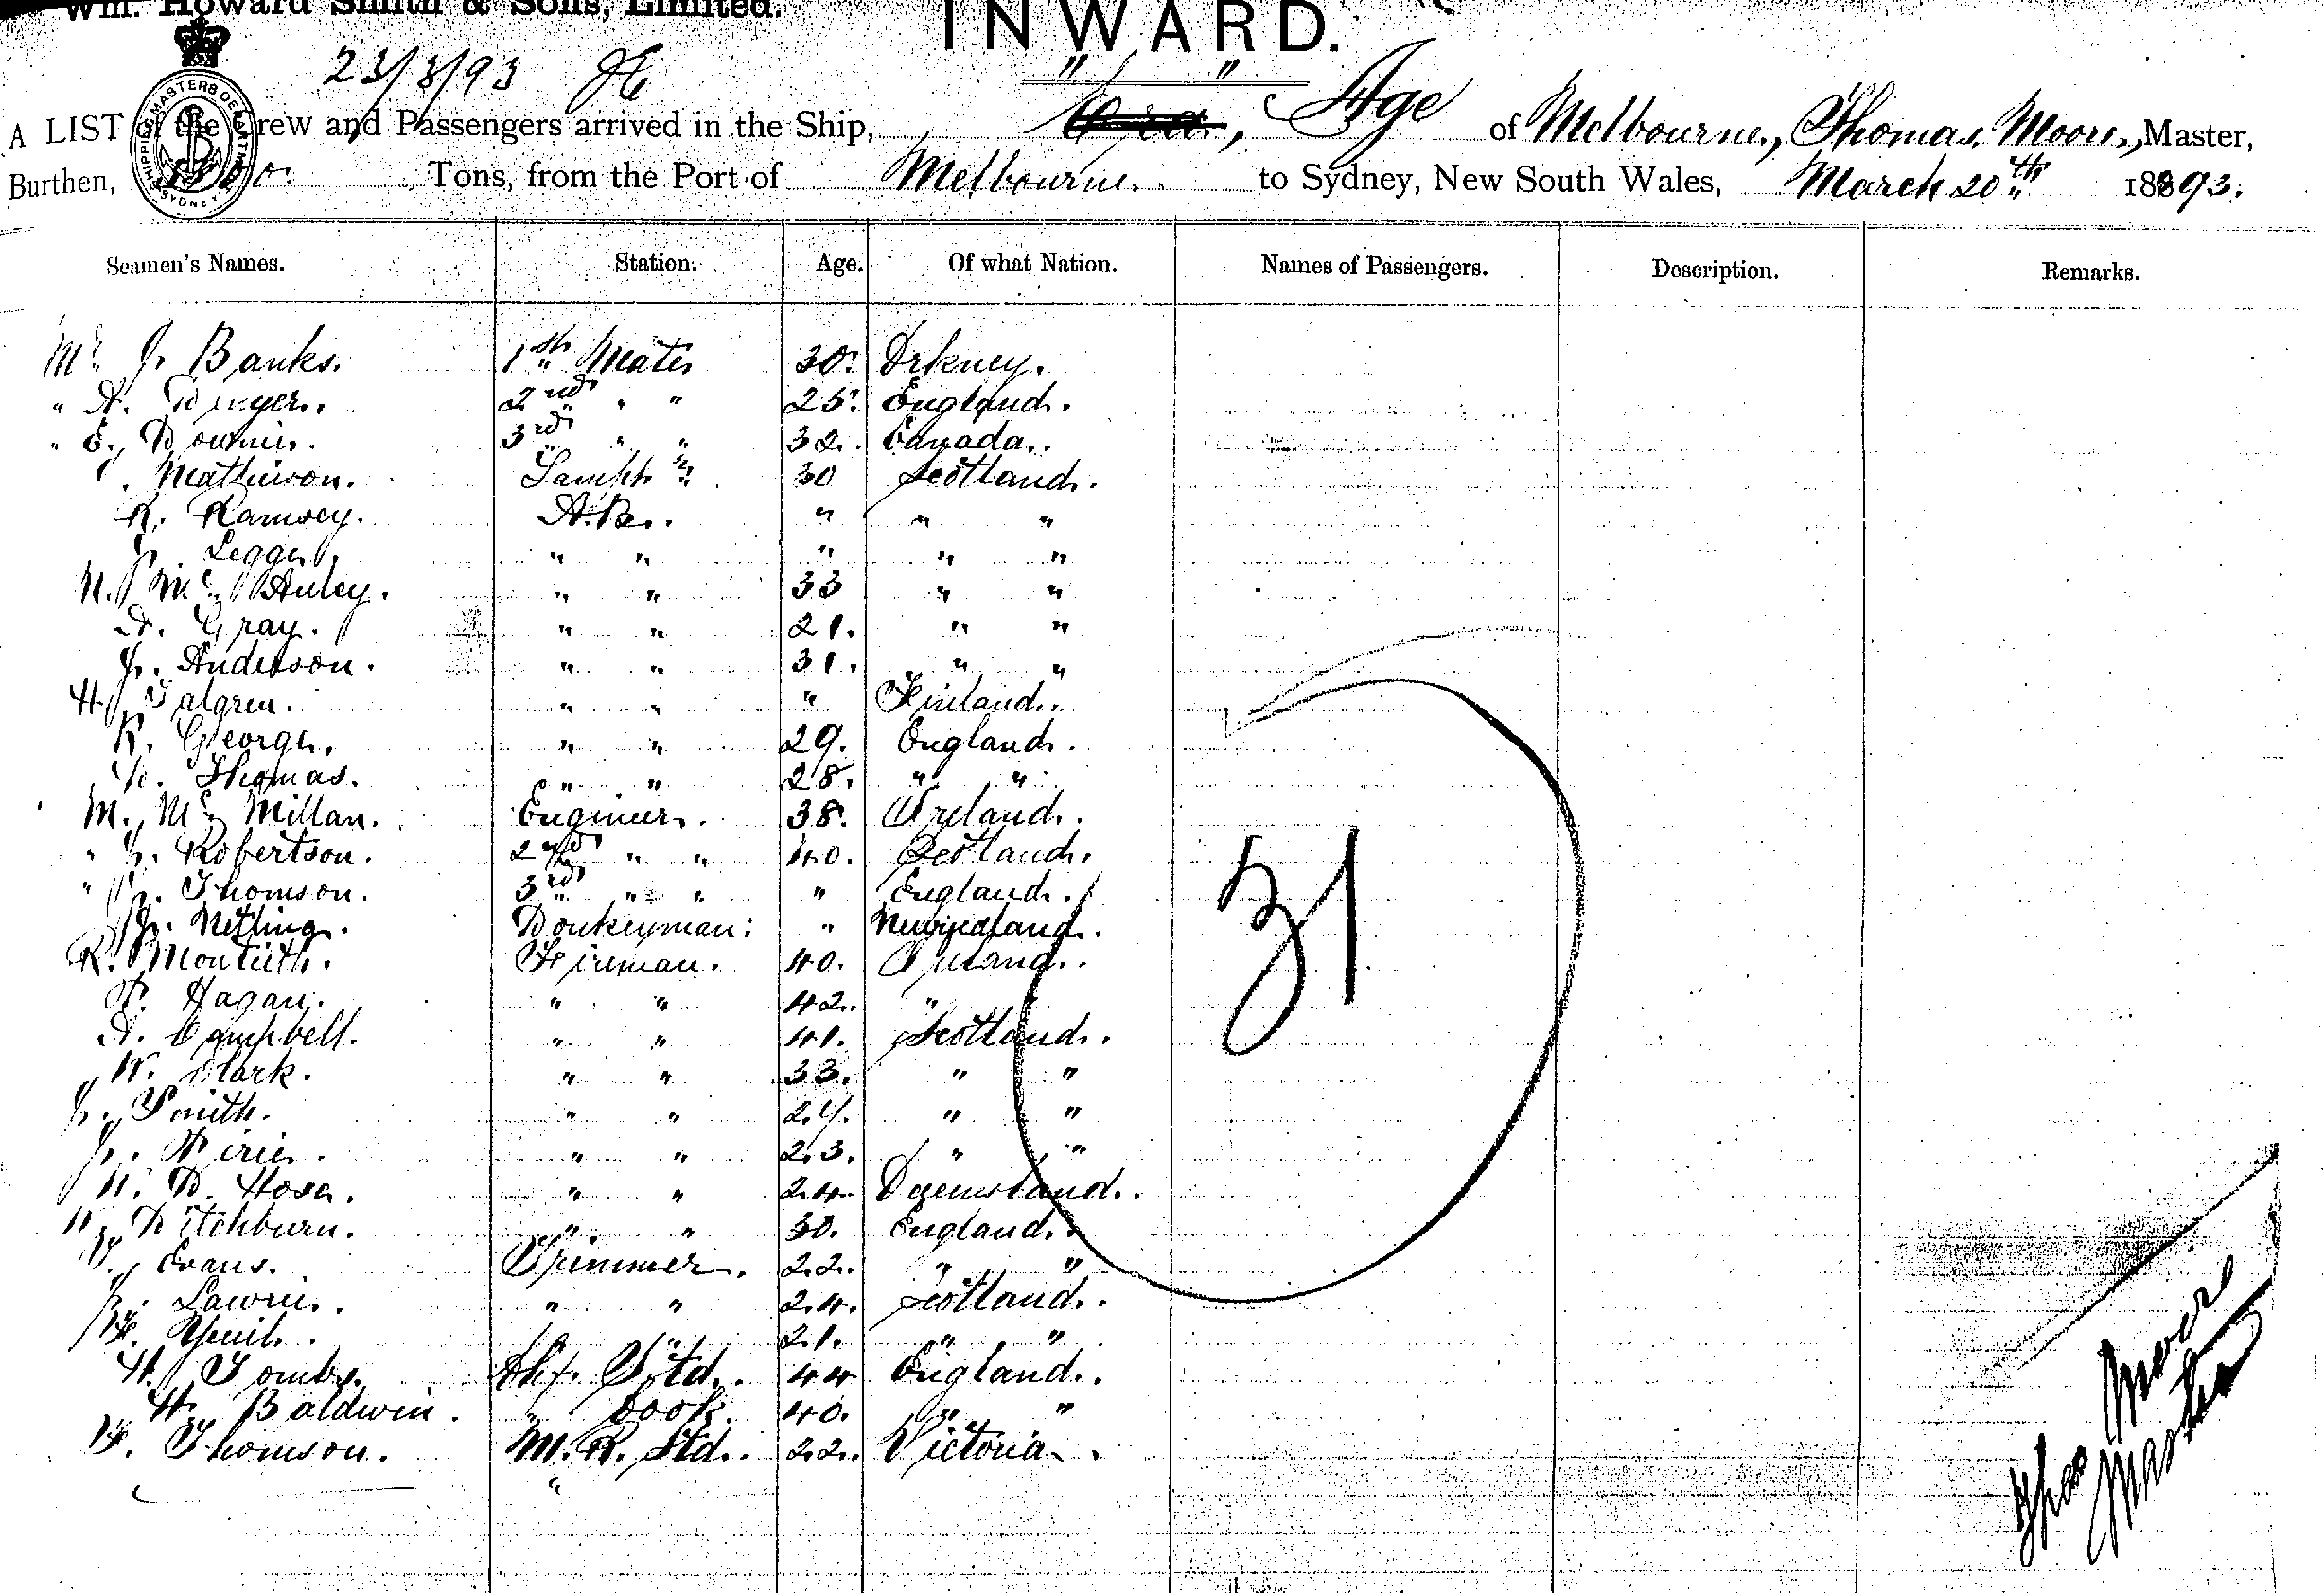 Wm. Howard Smith & Sons, Limited.
INWARD.
23/3/93
A LIST of the Crew and Passengers arrived in the Ship, " Age " of Melbourne, Thomas Moore, Master,
Burthen, Tons, from the Port of Melbourne to Sydney, New South Wales, March 20th 1893.
SHIPPING MASTERS DEPARTMENT SYDNEY
Seamen's Names. Station. Age. Of what Nation. Names of Passengers. Description. Remarks.
Mr. J. Banks. 1st Mate 30. Orkney.
" A. Dwyer. 2nd " " 25. England.
" E. Downie. 3rd " " 32. Canada.
Mathieson. Lamps 30 Scotland.
R. Ramsey. A.B. " " "
J. Legge. " " " " "
N. Mc Auley. " " 33 " "
A. Gray. " " 21. " "
J. Anderson. " " 31. " "
H. Talgren. " " " Finland.
R. George. " " 29. England.
Thomas. " " 28. " "
M. Mc Millan. Engineer. 38. Ireland.
" J. Robertson. 2nd " " 40. Scotland.
" J. Thomson. 3rd " " " England.
J. Netling. Donkeyman. "
R. Monteith. Fireman. 40. Ireland.
P. Hagan. " " 42. " "
A. Campbell. " " 41. Scotland.
W. Clark. " " 33. " "
J. Smith. " " 24. " "
J. Pirie. " " 23. " "
D. Hosa. " " 24. Queensland.
Ditchburn. " " 30. England.
Evans. Trimmer. 22. " "
J. Lawrie. " " 24. Scotland.
Yuill. " " 21. " "
H. Tombs. Chf. Std. 44 England.
H. Baldwin. " Cook. 40. " "
F. Thomson. M. R. Std. 22. Victoria.
31
Thos Moore
Master